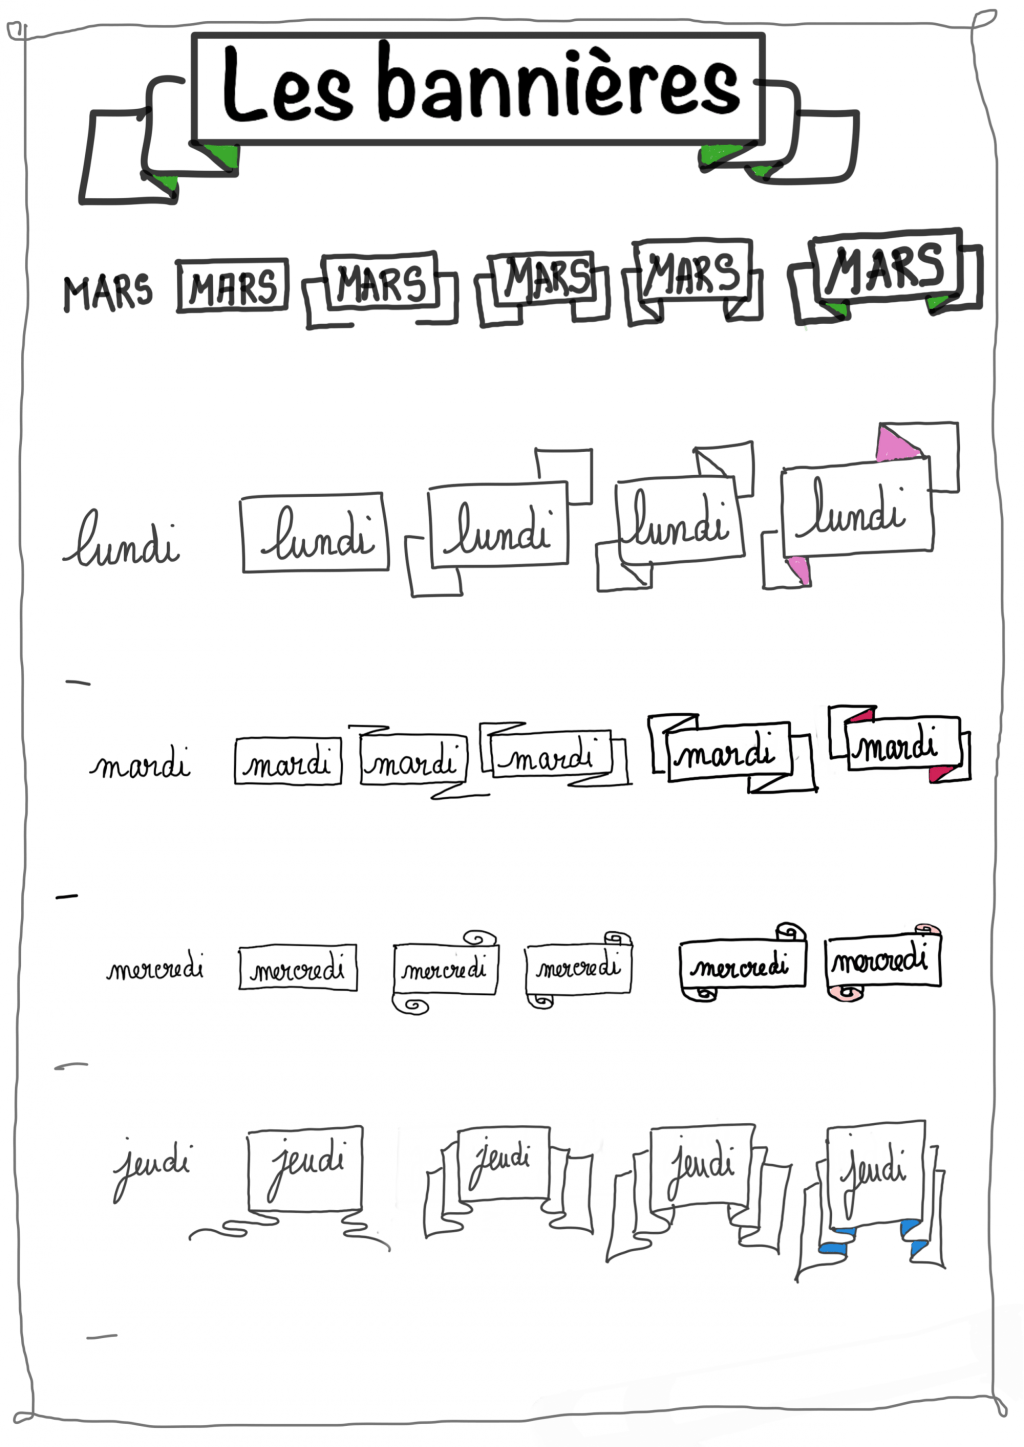 Les bannières
MARS MARS MARS MARS MARS MARS
lundi lundi lundi lundi lundi
mardi mardi mardi mardi mardi mardi
mercredi mercredi mercredi mercredi mercredi mercredi
jeudi jeudi jeudi jeudi jeudi